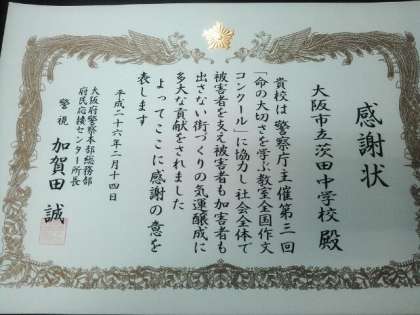 感謝状
大阪市立茨田中学校 殿
貴校は警察庁主催第三回
「命の大切さを学ぶ教室全国作文
コンクール」に協力し社会全体で
被害者を支え被害者も加害者も
出さない街づくりの気運醸成に
多大な貢献をされました
よってここに感謝の意を
表します
平成二十六年二月十四日
大阪府警察本部総務部
府民応接センター所長
警視 加賀田 誠